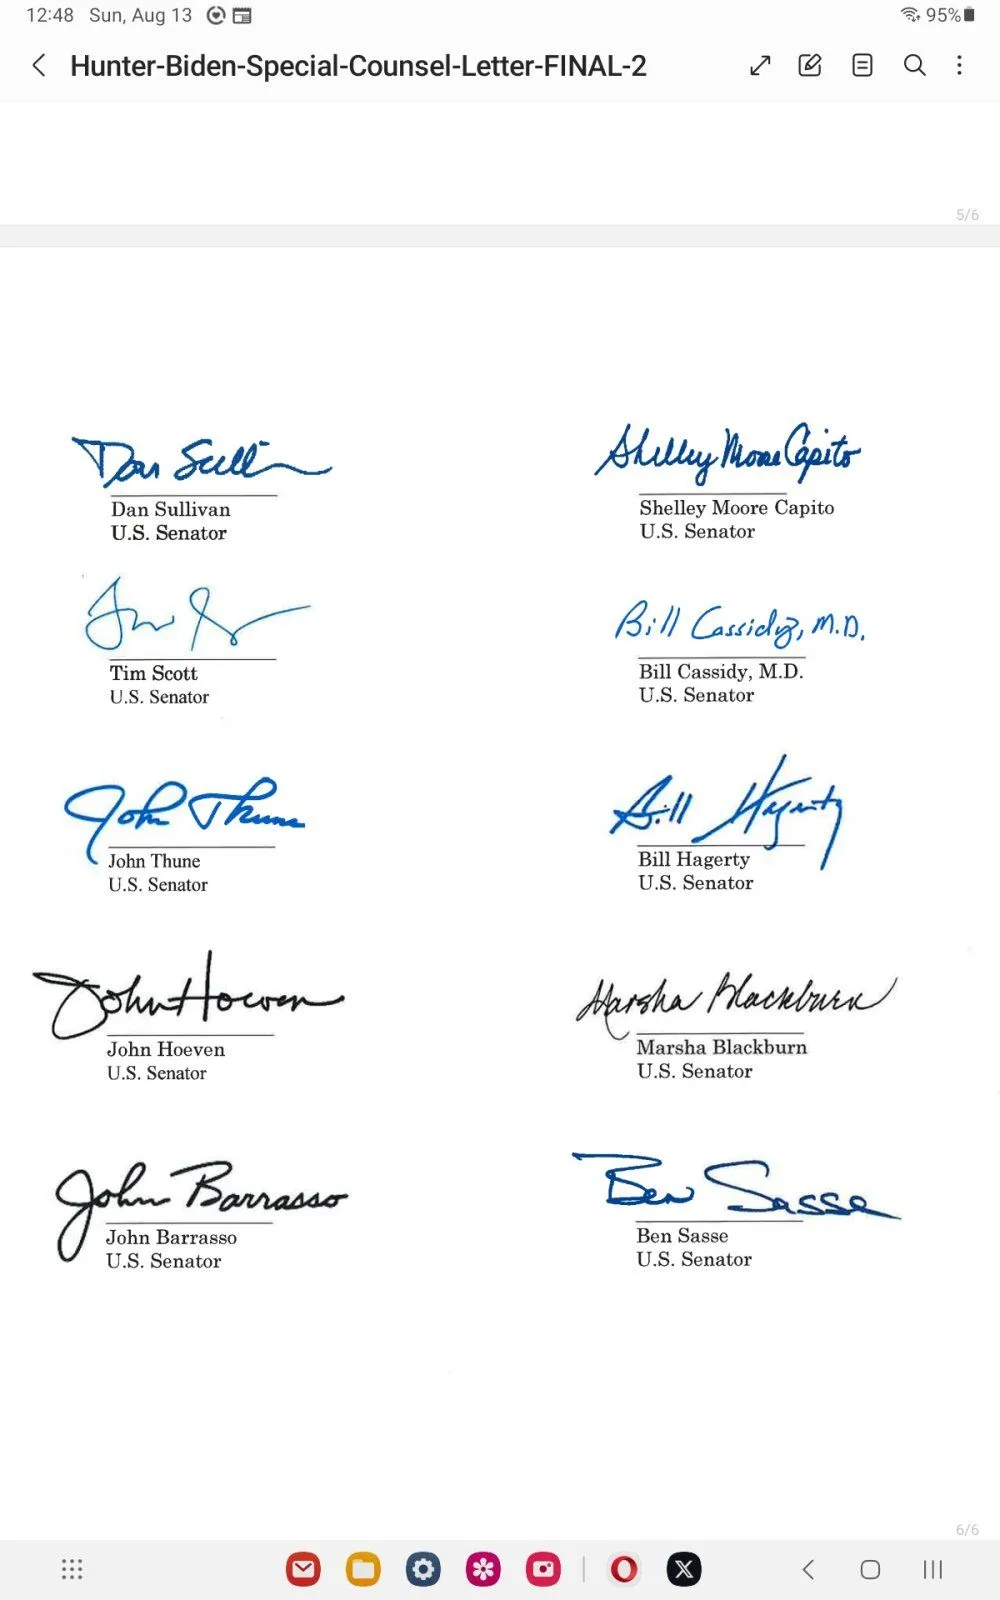 12:48 Sun, Aug 13 95%
Hunter-Biden-Special-Counsel-Letter-FINAL-2
5/6
Dan Sullivan
Dan Sullivan
U.S. Senator
Shelley Moore Capito
Shelley Moore Capito
U.S. Senator
Tim Scott
U.S. Senator
Bill Cassidy, M.D.
Bill Cassidy, M.D.
U.S. Senator
John Thune
John Thune
U.S. Senator
Bill Hagerty
Bill Hagerty
U.S. Senator
John Hoeven
John Hoeven
U.S. Senator
Marsha Blackburn
Marsha Blackburn
U.S. Senator
John Barrasso
John Barrasso
U.S. Senator
Ben Sasse
Ben Sasse
U.S. Senator
6/6